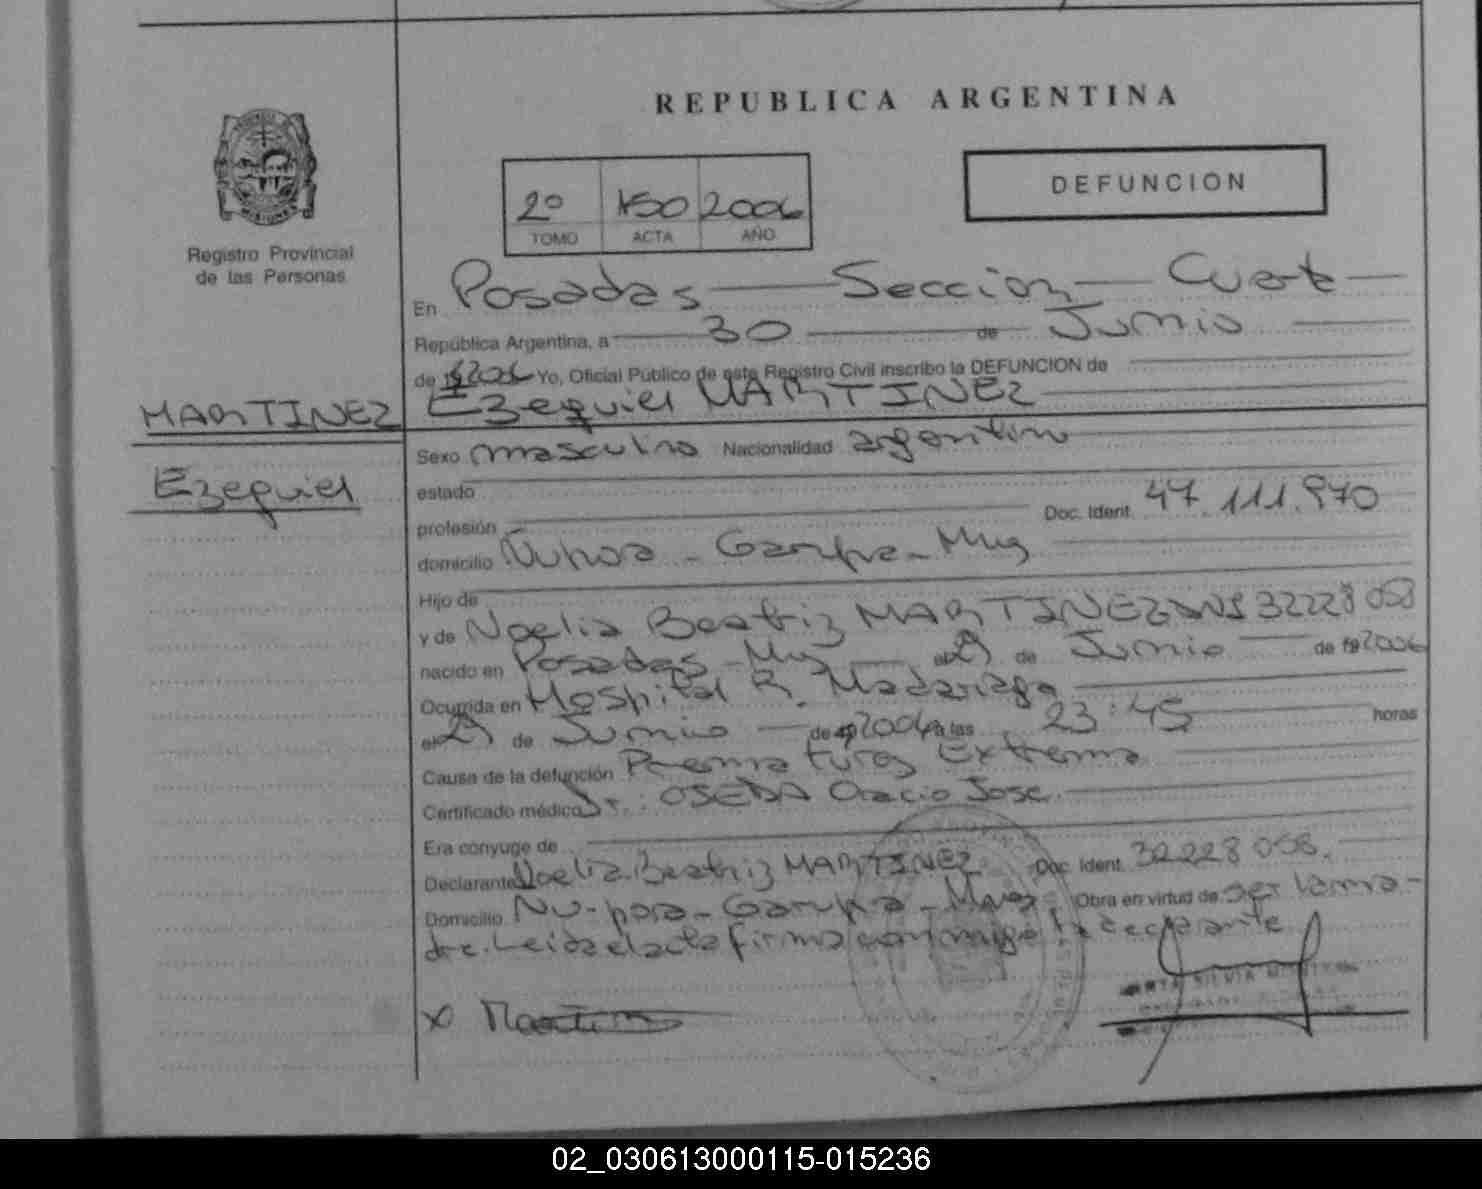 REPUBLICA ARGENTINA
DEFUNCION
2º 150 2006
TOMO ACTA AÑO
Registro Provincial
de las Personas
MISIONES
En Posadas Seccion Cuarta
República Argentina, a 30 de Junio
de 2006 Yo, Oficial Público de este Registro Civil inscribo la DEFUNCION de
Ezequiel MARTINEZ
MARTINEZ
Ezequiel
Sexo masculino Nacionalidad argentino
estado
profesión Doc. Ident. 47.111.970
domicilio Ñu-Pora - Garupa - Mnes
Hijo de
y de Noelia Beatriz MARTINEZ DNI 32228058
nacido en Posadas - Mnes el 29 de Junio de 192006
Ocurrida en Hospital R. Madariaga
el 29 de Junio de 2006 a las 23:45 horas
Causa de la defunción Prematurez Extrema
Certificado médico Dr. OSEDA Oracio Jose
Era conyuge de
Declarante Noelia Beatriz MARTINEZ Doc. Ident. 32228058.
Domicilio Ñu-pora - Garupa - Mnes Obra en virtud de ser la ma-
dre. Leida el acta firma conmigo la declarante
x Martinez
SILVIA
02_030613000115-015236